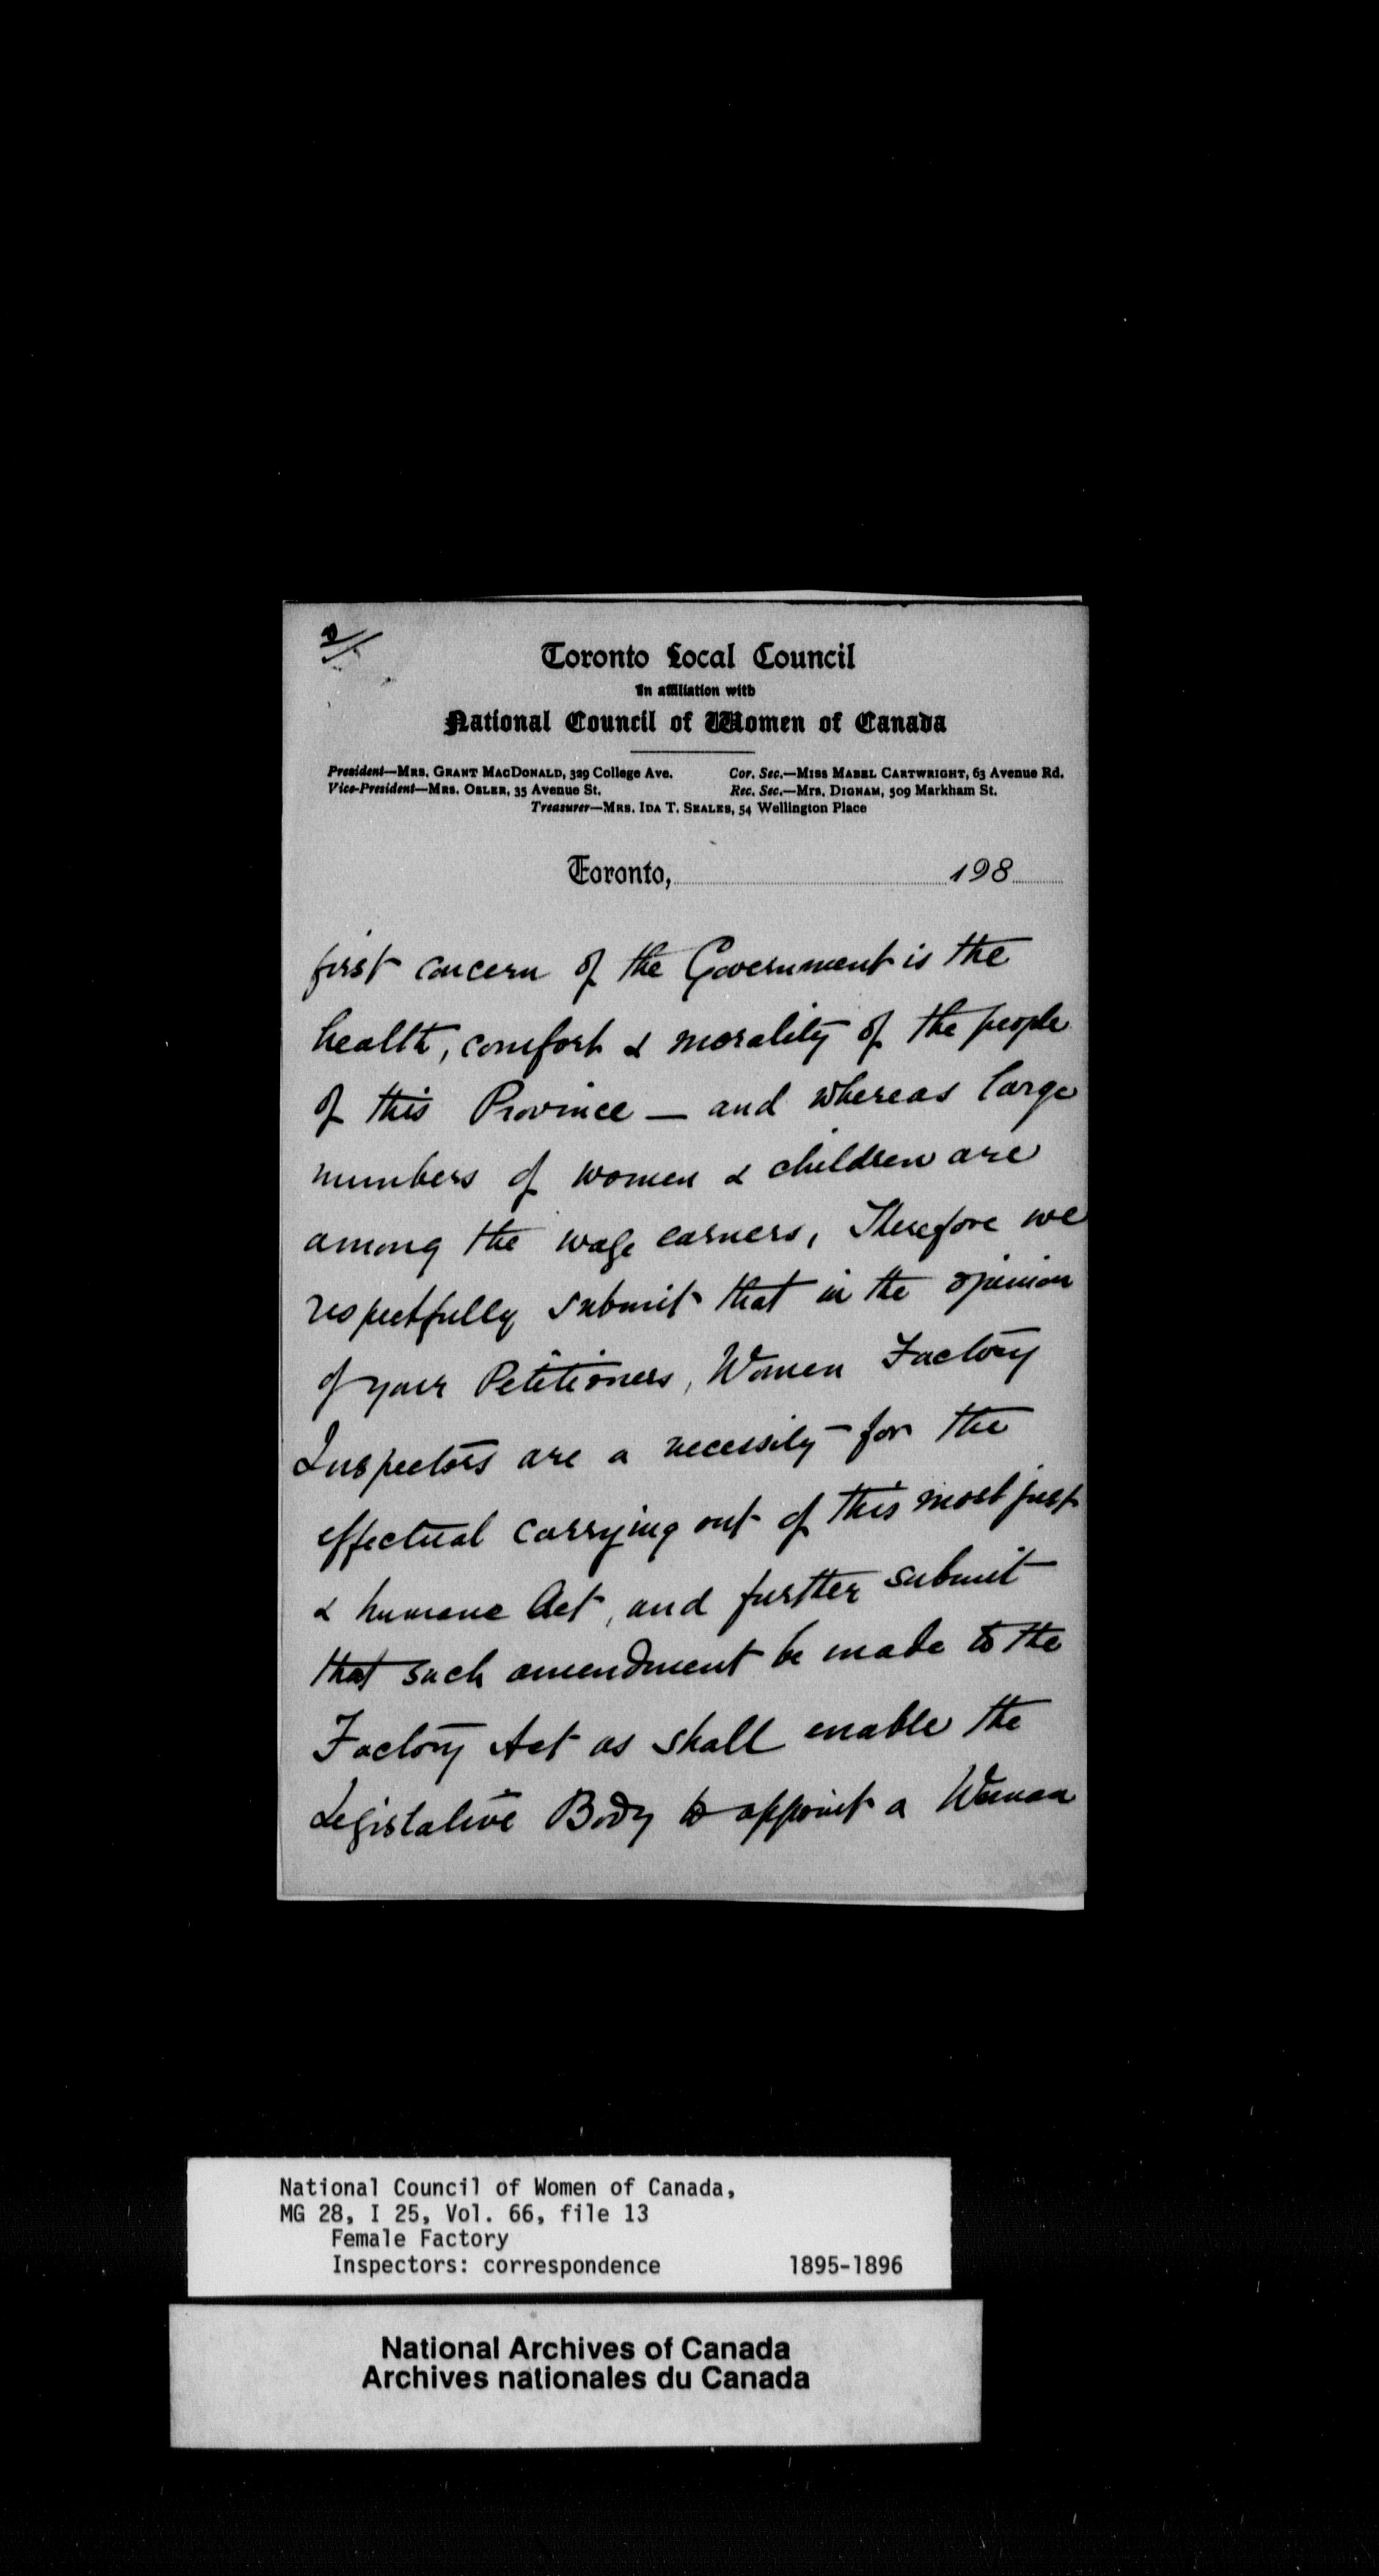 2//
Toronto Local Council
In affiliation with
National Council of Women of Canada
President—MRS. GRANT MACDONALD, 329 College Ave. Cor. Sec.—MISS MABEL CARTWRIGHT, 63 Avenue Rd.
Vice-President—MRS. OSLER, 35 Avenue St. Rec. Sec.—Mrs. DIGNAM, 509 Markham St.
Treasurer—MRS. IDA T. SEALES, 54 Wellington Place
Toronto, 198
first concern of the Government is the
health, comfort & morality of the people
of this Province — and whereas large
numbers of women & children are
among the wage earners, Therefore we
respectfully submit that in the opinion
of your Petitioners, Women Factory
Inspectors are a necessity for the
effectual carrying out of this most just
& humane Act, and further submit
that such amendment be made to the
Factory Act as shall enable the
Legislative Body to appoint a Woman
National Council of Women of Canada,
MG 28, I 25, Vol. 66, file 13
Female Factory
Inspectors: correspondence 1895-1896
National Archives of Canada
Archives nationales du Canada